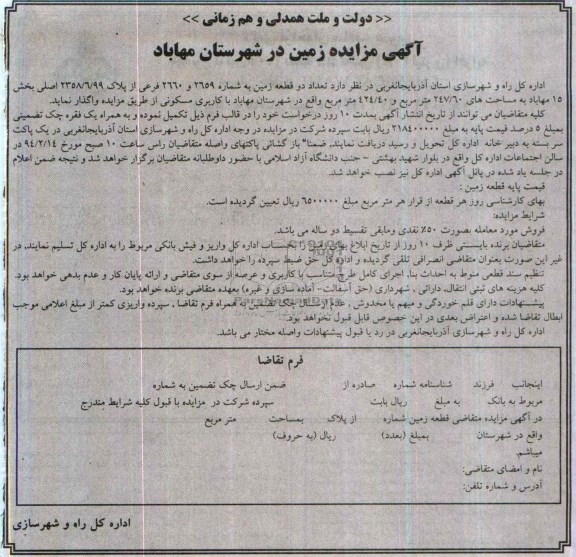 << دولت و ملت همدلی و هم زمانی >>
آگهی مزایده زمین در شهرستان مهاباد
اداره کل راه و شهرسازی استان آذربایجانغربی در نظر دارد تعداد دو قطعه زمین به شماره ۲۶۵۹ و ۲۶۶۰ فرعی از پلاک ۲۳۵۸/۶/۹۹ اصلی بخش
۱۵ مهاباد به مساحت های ۲۴۷/۶۰ متر مربع و ۴۲۴/۴۰ متر مربع واقع در شهرستان مهاباد با کاربری مسکونی از طریق مزایده واگذار نماید.
کلیه متقاضیان می توانند از تاریخ انتشار آگهی بمدت ۱۰ روز درخواست خود را در قالب فرم ذیل تکمیل نموده و به همراه یک فقره چک تضمینی
بمبلغ ۵ درصد قیمت پایه به مبلغ ۲۱۸۴۰۰۰۰۰ ریال بابت سپرده شرکت در مزایده در وجه اداره کل راه و شهرسازی استان آذربایجانغربی در یک پاکت
سر بسته به دبیر خانه اداره کل تحویل و رسید دریافت نمایند. ضمنا" باز گشائی پاکتهای واصله متقاضیان راس ساعت ۱۰ صبح مورخ ۹۴/۲/۱۴ در
سالن اجتماعات اداره کل واقع در بلوار شهید بهشتی - جنب دانشگاه آزاد اسلامی با حضور داوطلبانه متقاضیان برگزار خواهد شد و نتیجه ضمن اعلام
در جلسه یاد شده در پانل آگهی اداره کل نیز نصب خواهد شد.
قیمت پایه قطعه زمین :
بهای کارشناسی روز هر قطعه از قرار هر متر مربع مبلغ ۶۵۰۰۰۰۰ ریال تعیین گردیده است.
شرایط مزایده:
فروش مورد معامله بصورت ۵۰٪ نقدی ومابقی تقسیط دو ساله می باشد.
متقاضیان برنده بایستی ظرف ۱۰ روز از تاریخ ابلاغ بهای بحساب اداره کل واریز و فیش بانکی مربوط را به اداره کل تسلیم نمایند. در
غیر این صورت بعنوان متقاضی انصرافی تلقی گردیده و اداره کل حق ضبط سپرده را خواهد داشت.
تنظیم سند قطعی منوط به احداث بنا، اجرای کامل طرح متناسب با کاربری و عرصه از سوی متقاضی و ارائه پایان کار و عدم بدهی خواهد بود.
کلیه هزینه های ثبتی انتقال، دارائی ، شهرداری (حق آسفالت- آماده سازی و غیره) بعهده متقاضی برنده خواهد بود.
پیشنهادات دارای قلم خوردگی و مبهم یا مخدوش ، عدم ارسال چک تضمین به همراه فرم تقاضا ، سپرده واریزی کمتر از مبلغ اعلامی موجب
ابطال تقاضا شده و اعتراض بعدی در این خصوص قابل قبول نخواهد بود.
اداره کل راه و شهرسازی آذربایجانغربی در رد یا قبول پیشنهادات واصله مختار می باشد.
فرم تقاضا
اینجانب فرزند شناسنامه شماره صادره از ضمن ارسال چک تضمین به شماره
مربوط به بانک به مبلغ ریال بابت سپرده شرکت در مزایده با قبول کلیه شرایط مندرج
در آگهی مزایده متقاضی قطعه زمین شماره از پلاک بمساحت متر مربع
واقع در شهرستان بمبلغ (بعدد) ریال (به حروف)
میباشم.
نام و امضای متقاضی:
آدرس و شماره تلفن:
اداره کل راه و شهرسازی